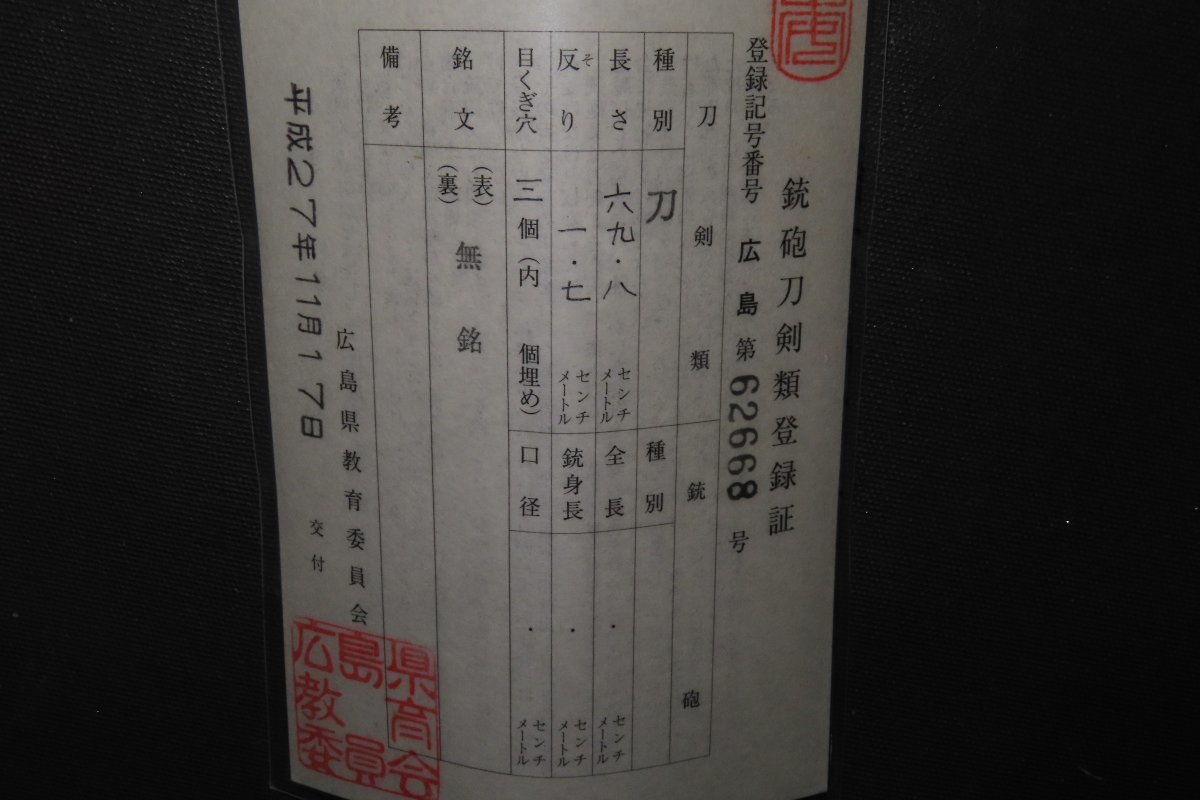 銃砲刀剣類登録証
登録記号番号 広島第62668号
刀剣類
銃砲
種別 刀
種別
長さ 六九・八 センチメートル
全長 ・ センチメートル
反り そ 一・七 センチメートル
銃身長 ・ センチメートル
目くぎ穴 三個(内 個埋め)
口径 ・ センチメートル
銘文 (表) 無銘
(裏)
備考
広島県教育委員会
平成27年11月17日 交付
広島県教育委員会